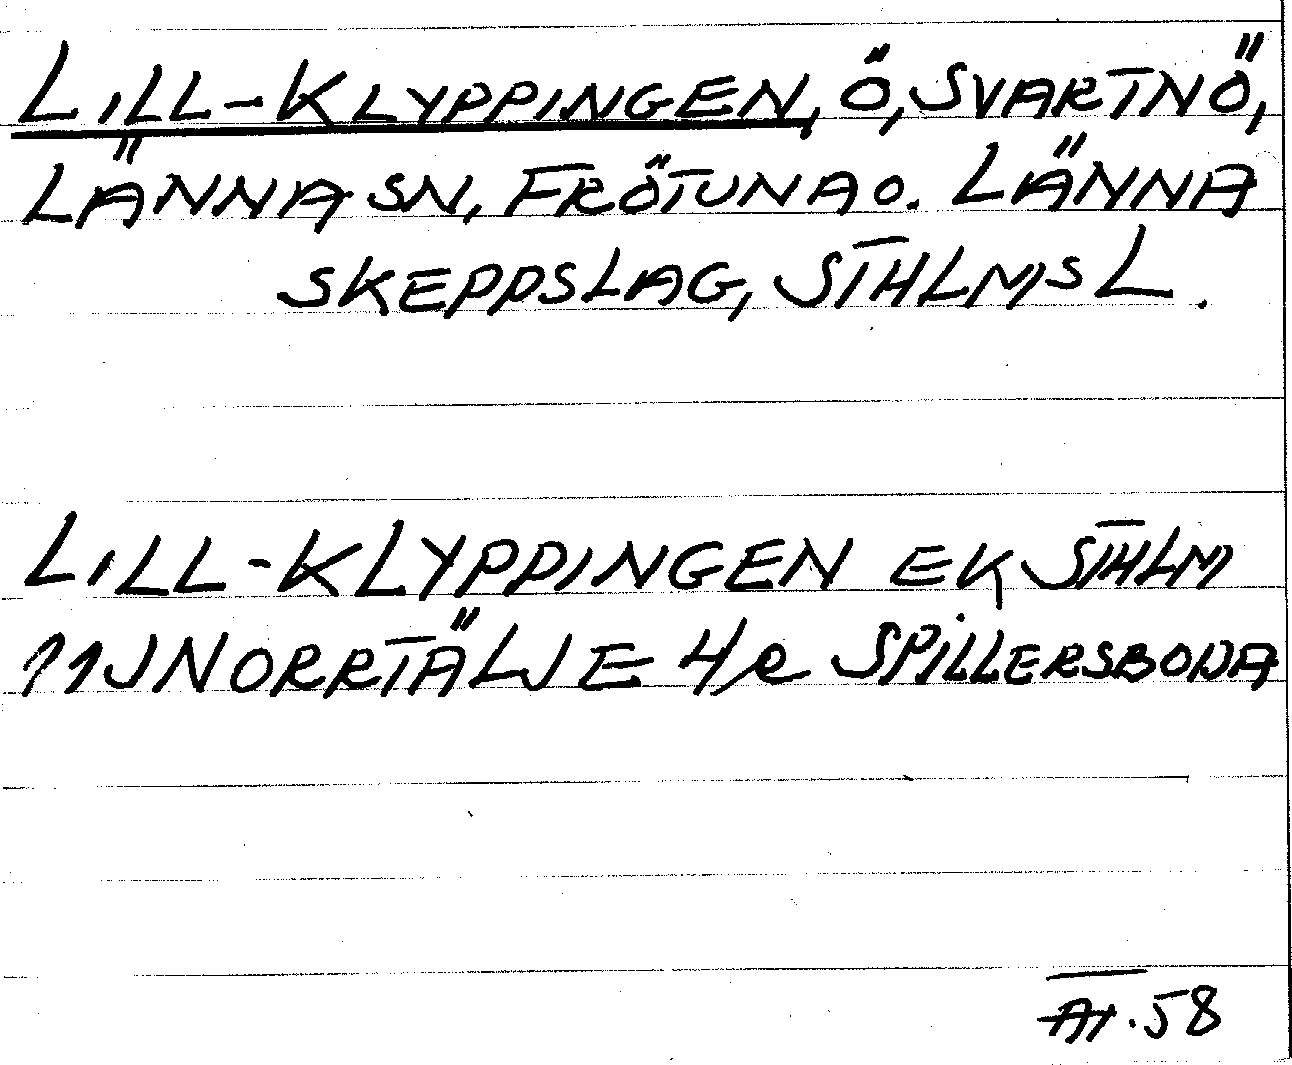 LILL-KLYPPINGEN, Ö, SVARTNÖ,
LÄNNA SN, FRÖTUNA O. LÄNNA
SKEPPSLAG, STHLMS L.
LILL-KLYPPINGEN EK STHLM
11J NORRTÄLJE 4/e SPILLERSBODA
.58